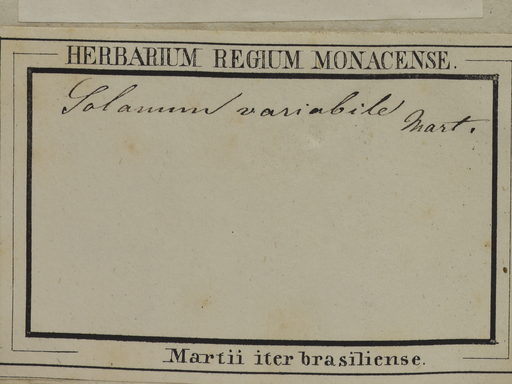 HERBARIUM REGIUM MONACENSE.
Solanum variabile Mart.
Martii iter brasiliense.